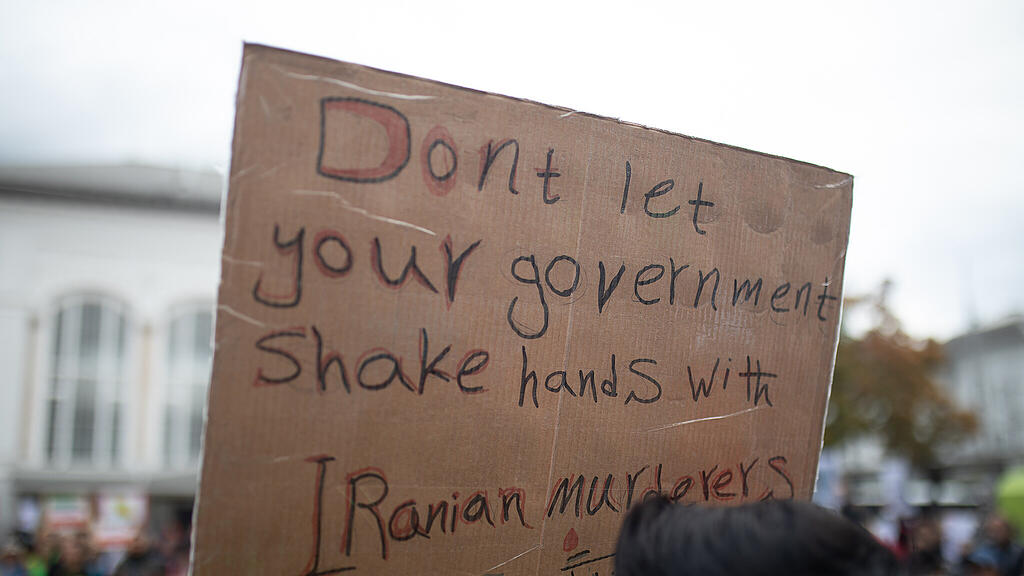 Dont let
your government
Shake hands with
IRanian murderers